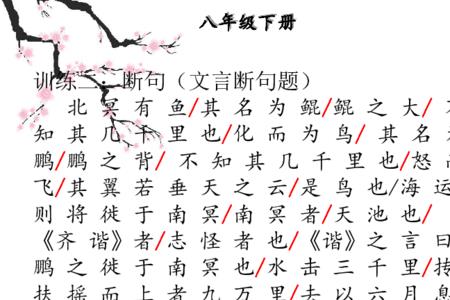 八年级下册
训练二：断句（文言断句题）
北冥有鱼/其名为鲲/鲲之大/
知其几千里也/化而为鸟/其名
鹏/鹏之背/不知其几千里也/怒
飞/其翼若垂天之云/是鸟也/海运
则将徙于南冥/南冥者/天池也/
《齐谐》者/志怪者也/《谐》之言曰
鹏之徙于南冥也/水击三千里/抟
扶摇而上者九万里/去以六月息